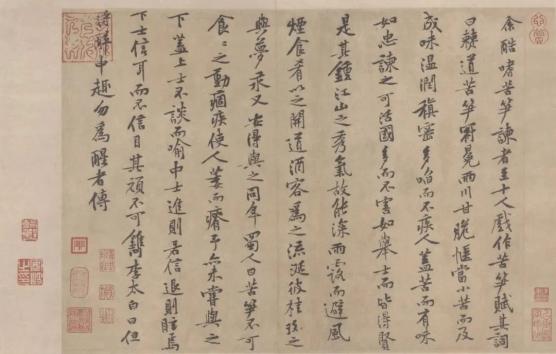 余酷嗜苦笋諫者至十人戲作苦笋賦其詞
曰僰道苦笋冠冕兩川甘脆愜當小苦而及
成味溫潤稹密多啗而不疾人蓋苦而有味
如忠諫之可活國多而不害如舉士而皆得賢
是其鍾江山之秀氣故能深雨露而避風
煙食肴以之開道酒客為之流涎彼桂玫之
與夢汞又安得與之同年蜀人曰苦笋不可
食〻之動痼疾使人萎而瘠予亦未嘗與之
下蓋上士不談而喻中士進則若信退則眩焉
下士信耳而不信目其頑不可鐫李太白曰但
得醉中趣勿為醒者傳